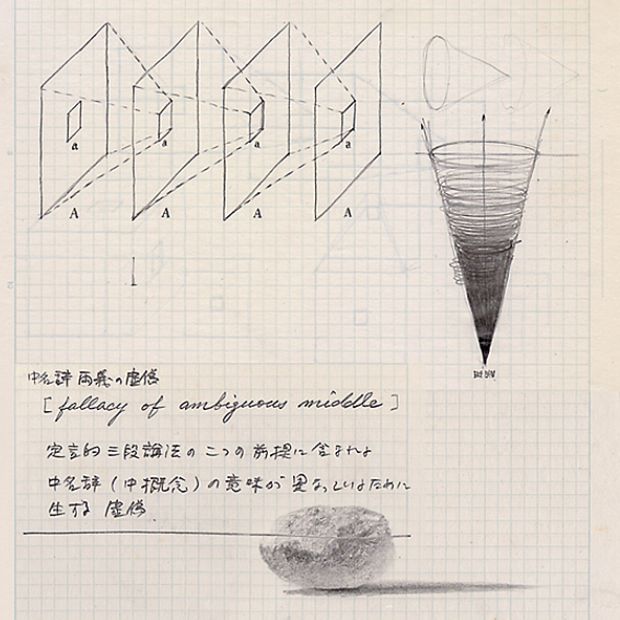 a a a a
A A A A
中名辞両義の虚偽
[fallacy of ambiguous middle]
定言的三段論法の二つの前提に含まれる
中名辞(中概念)の意味が異なっているために
生ずる 虚偽